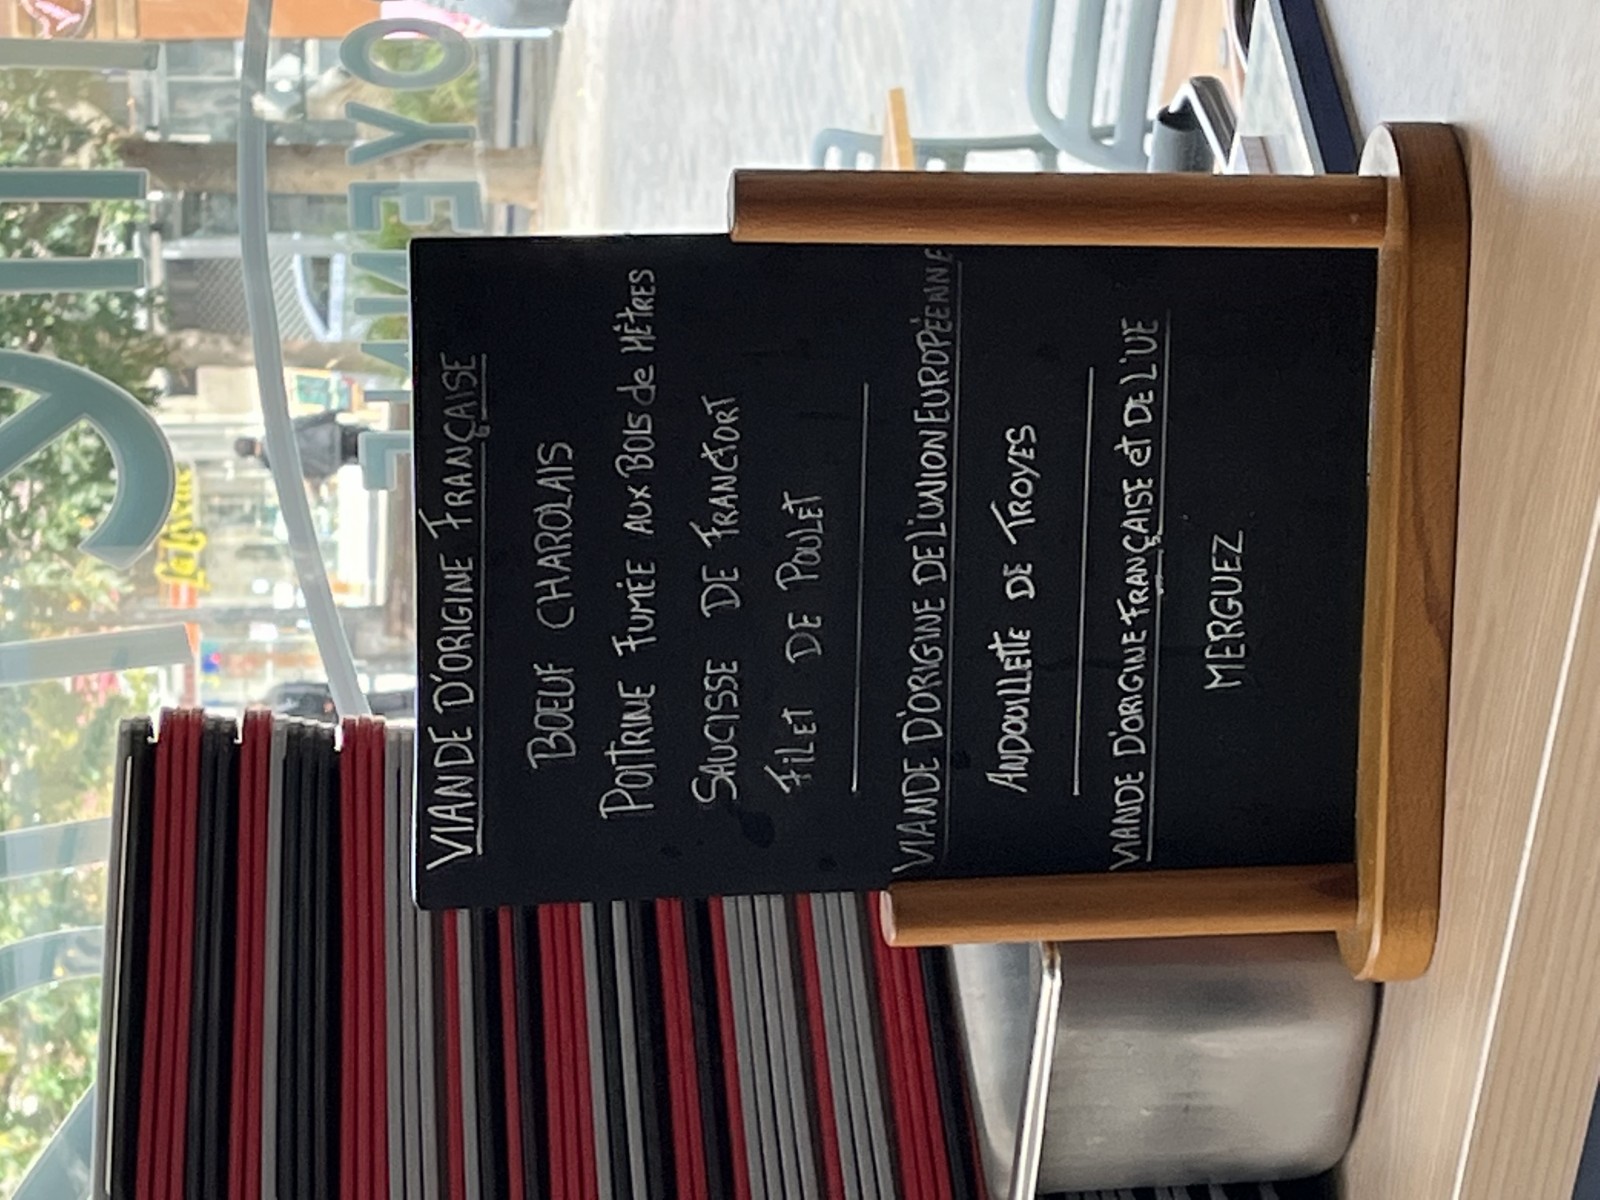 VIANDE D'ORIGINE FRANÇAISE
BOEUF CHAROLAIS
POITRINE FUMÉE AUX BOIS de HÊTRES
SAUCISSE DE FRANCFORT
FILET DE POULET
VIANDE D'ORIGINE DE L'UNION EUROPÉENNE
ANDOUILLETTE DE TROYES
VIANDE D'ORIGINE FRANÇAISE et DE L'UE
MERGUEZ